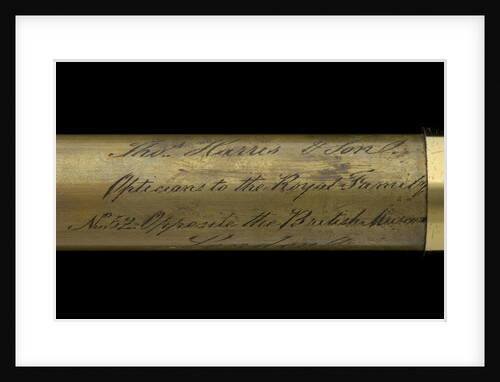 Thos. Harris & Son
Opticians to the Royal Family
No. 52 Opposite the British Museum
London